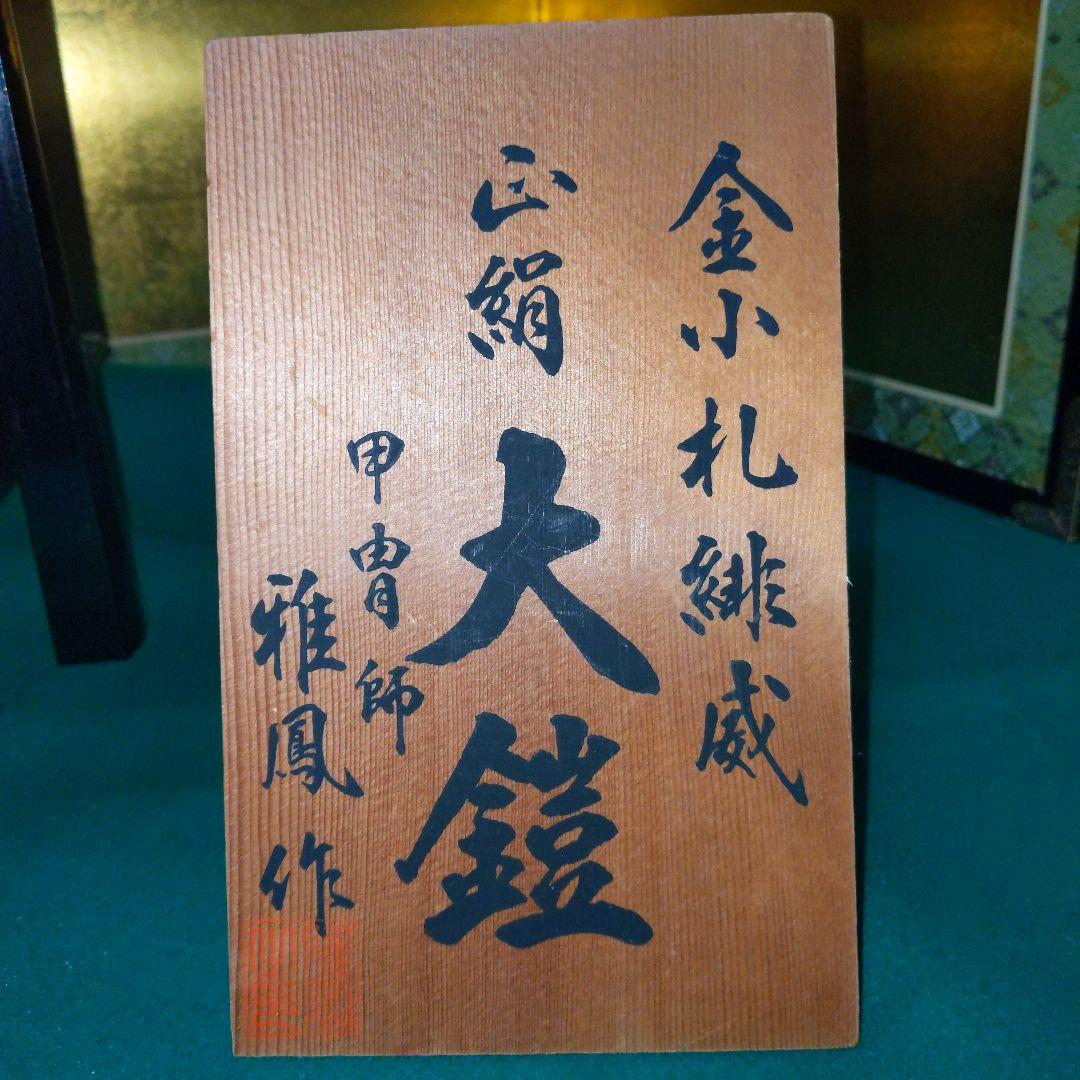 金小札緋威
正絹
大鎧
甲冑師
雅鳳作